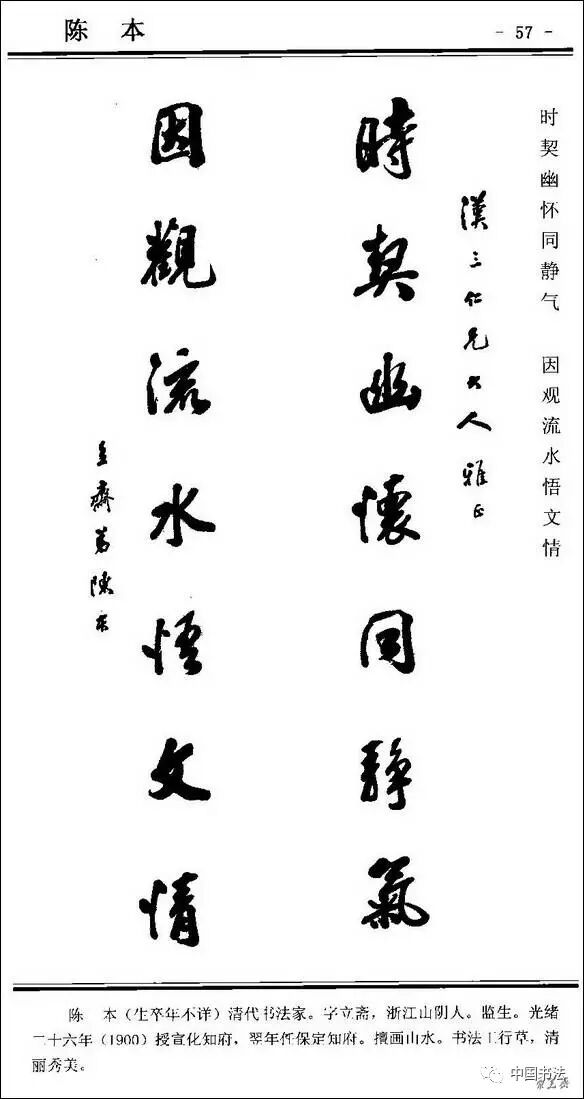 陈 本
- 57 -
时契幽怀同静气 因观流水悟文情
漢三仁兄大人雅正
時契幽懷同靜氣
因觀流水悟文情
立齋弟陳本
陈 本（生卒年不详）清代书法家。字立斋，浙江山阴人。监生。光绪
二十六年（1900）授宣化知府，翌年任保定知府。擅画山水。书法工行草，清
丽秀美。
中国书法